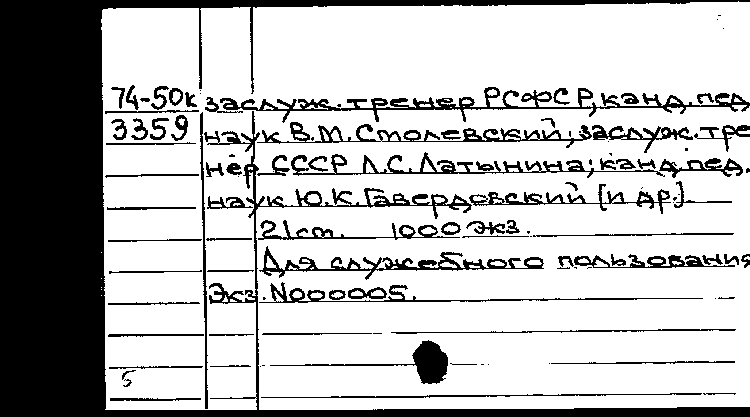 74-50к заслуж. тренер РСФСР, канд. пед.
3359 наук В.М. Столевский; заслуж. тре
нер СССР Л.С. Латынина; канд. пед.
наук Ю.К. Гавердовский [и др.].
21 ст. 1000 экз.
Для служебного пользования
Экз. N000005.
5